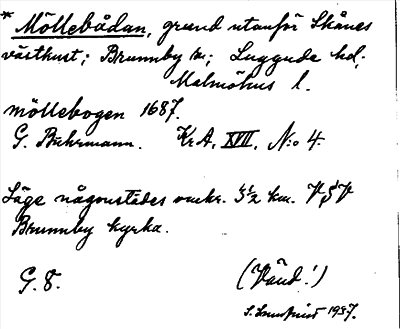 * Möllebådan, grund utanför Skånes
västkust; Brunnby sn; Luggude hd;
Malmöhus l.
möllebogen 1687.
G. Buhrmann. Kr A. XVII. N:o 4.
Läge någonstädes omkr. 3½ km. VSV
Brunnby kyrka.
G. 8. (Vänd!)
1937.